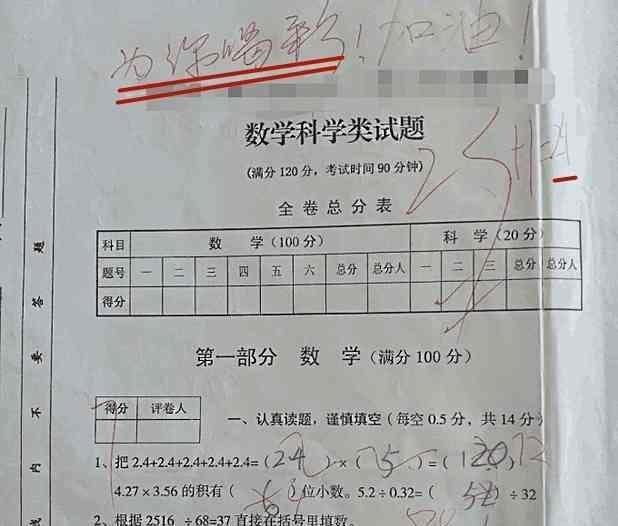 为你喝彩！加油！
数学科学类试题
(满分120分，考试时间90分钟)
全卷总分表
科目 数 学(100分) 科 学(20分)
题号 一 二 三 四 五 六 总分 总分人 一 二 三 总分 总分人
得分
第一部分 数 学(满分100分)
得分 评卷人
一、认真读题，谨慎填空(每空0.5分，共14分)
1、把2.4+2.4+2.4+2.4+2.4=(24)×(5)=(120)12
4.27×3.56的积有( 6 )位小数。5.2÷0.32=( 52 )÷32
2、根据2516 ÷68=37 直接在括号里填数。
题
答
要
不
内
线